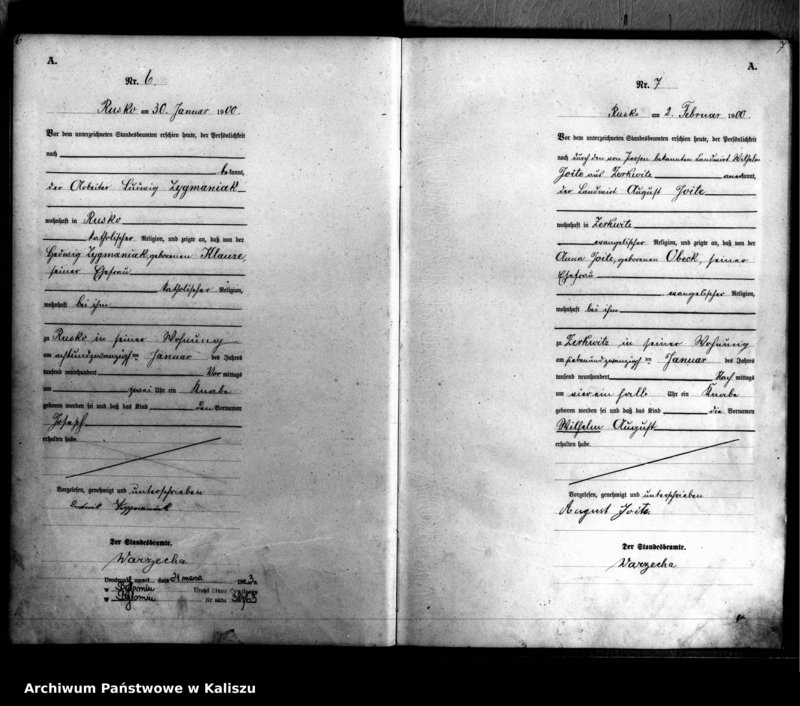 6
A.
Nr. 6
Rusko am 30. Januar 1900
Vor dem unterzeichneten Standesbeamten erschien heute, der Persönlichkeit
nach
bekannt,
der Arbeiter Ludwig Zygmaniak
wohnhaft in Rusko
katholischer Religion, und zeigte an, daß von der
Hedwig Zygmaniak, geborenen Klauze,
seiner Ehefrau
katholischer Religion,
wohnhaft bei ihm
zu Rusko in seiner Wohnung
am achtundzwanzigsten Januar des Jahres
tausend neunhundert Vor mittags
um zwei Uhr ein Knabe
geboren worden sei und daß das Kind den Vornamen
Joseph
erhalten habe.
Vorgelesen, genehmigt und unterschrieben
Ludwik Zygmaniak
Der Standesbeamte.
Warzecha
dnia 31 marca 1963 r.
w Bytomiu
w Bytomiu Nr aktu
7
A.
Nr. 7
Rusko am 2. Februar 1900
Vor dem unterzeichneten Standesbeamten erschien heute, der Persönlichkeit
nach durch den von Person bekannten Landwirt Wilhelm
Joite aus Zerkwitz anerkannt,
der Landwirt August Joite
wohnhaft in Zerkwitz
evangelischer Religion, und zeigte an, daß von der
Anna Joite, geborenen Obeck, seiner
Ehefrau
evangelischer Religion,
wohnhaft bei ihm
zu Zerkwitz in seiner Wohnung
am siebenundzwanzigsten Januar des Jahres
tausend neunhundert Nach mittags
um vier ein halb Uhr ein Knabe
geboren worden sei und daß das Kind die Vornamen
Wilhelm August
erhalten habe.
Vorgelesen, genehmigt und unterschrieben
August Joite
Der Standesbeamte.
Warzecha
Archiwum Państwowe w Kaliszu